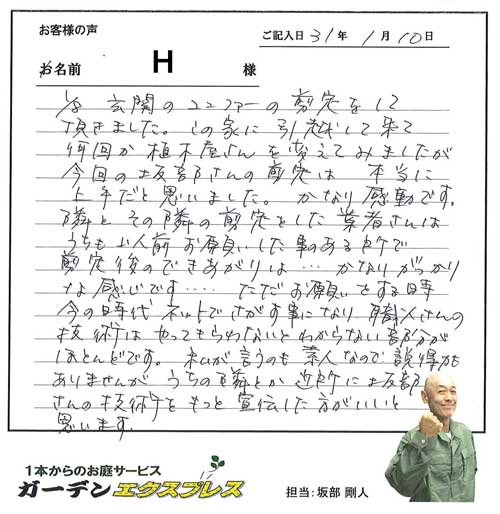 お客様の声
ご記入日 31年 1月 10日
お名前 H 様
1/8 玄関のコニファーの剪定をして
頂きました。この家に引越して来て
何回か植木屋さんを変えてみましたが
今回の坂部さんの剪定は 本当に
上手だと思いました。かなり感動です。
隣とその隣の剪定をした業者さんは
うちも 前お願いした事のある所で
剪定後のできあがりは… かなりがっかり
な感じです‥‥ ただお願いをする時
今の時代 ネットでさがす事になり 職人さんの
技術は やってもらわないとわからない部分が
ほとんどです。私が言うのも 素人なので説得力も
ありませんが うちの隣とか 近所に坂部
さんの技術をもっと宣伝した方がいいと
思います。
1本からのお庭サービス
ガーデンエクスプレス
担当:坂部 剛人